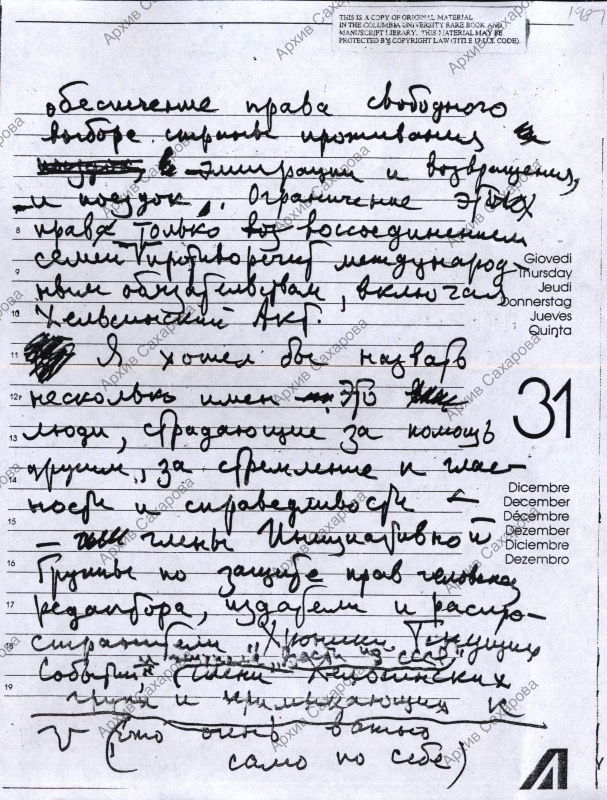 1987
THIS IS A COPY OF ORIGINAL MATERIAL
IN THE COLUMBIA UNIVERSITY RARE BOOK AND
MANUSCRIPT LIBRARY. THIS MATERIAL MAY BE
PROTECTED BY COPYRIGHT LAW (TITLE 17 U.S. CODE).
обеспечение права свободного
выбора страны проживания
в эмиграции и возвращения,
и поездок. Ограничение этих
8 прав только воссоединением
семей противоречит международ-
9 ным обязательствам, включая
10 Хельсинкский Акт.
Giovedi
Thursday
Jeudi
Donnerstag
Jueves
Quinta
11 Я хотел бы назвать
12 несколько имен - Это
31
13 люди, страдающие за помощь
14 другим, за стремление к глас-
ности и справедливости -
15 - члены Инициативной
16 Группы по защите прав человека,
17 редактора, издатели и распро-
18 странители "Хроники Текущих
"Вести из СССР"
19 Событий", члены Хельсинкских
групп и примыкающих к
V (это очень важно
само по себе)
Dicembre
December
Décembre
Dezember
Diciembre
Dezembro
Архив Сахарова